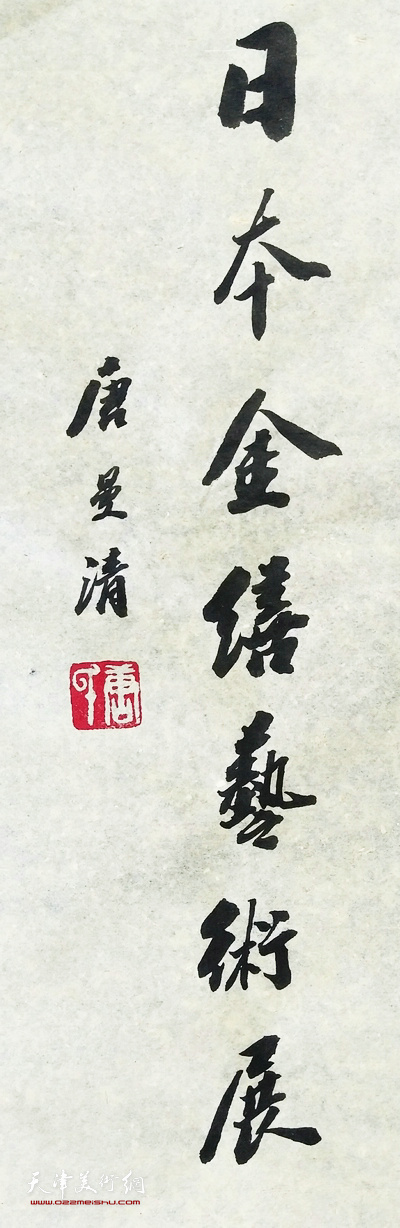 日本金繕藝術展
唐曼清
天津美術網
www.022meishu.com